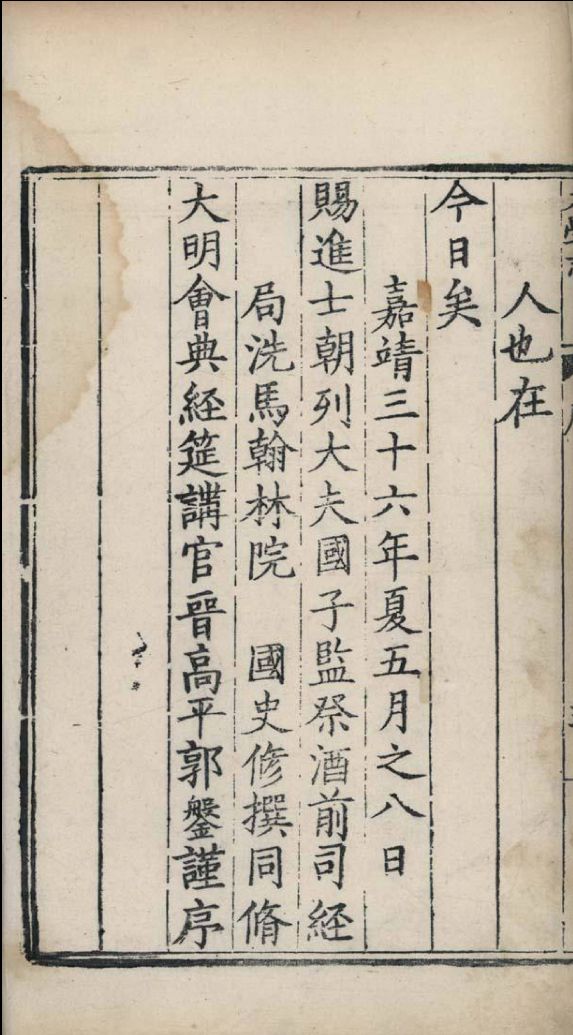 人也在
今日矣
嘉靖三十六年夏五月之八日
賜進士朝列大夫國子監祭酒前司經
局洗馬翰林院 國史修撰同脩
大明會典経筵講官晉高平郭鑿謹序